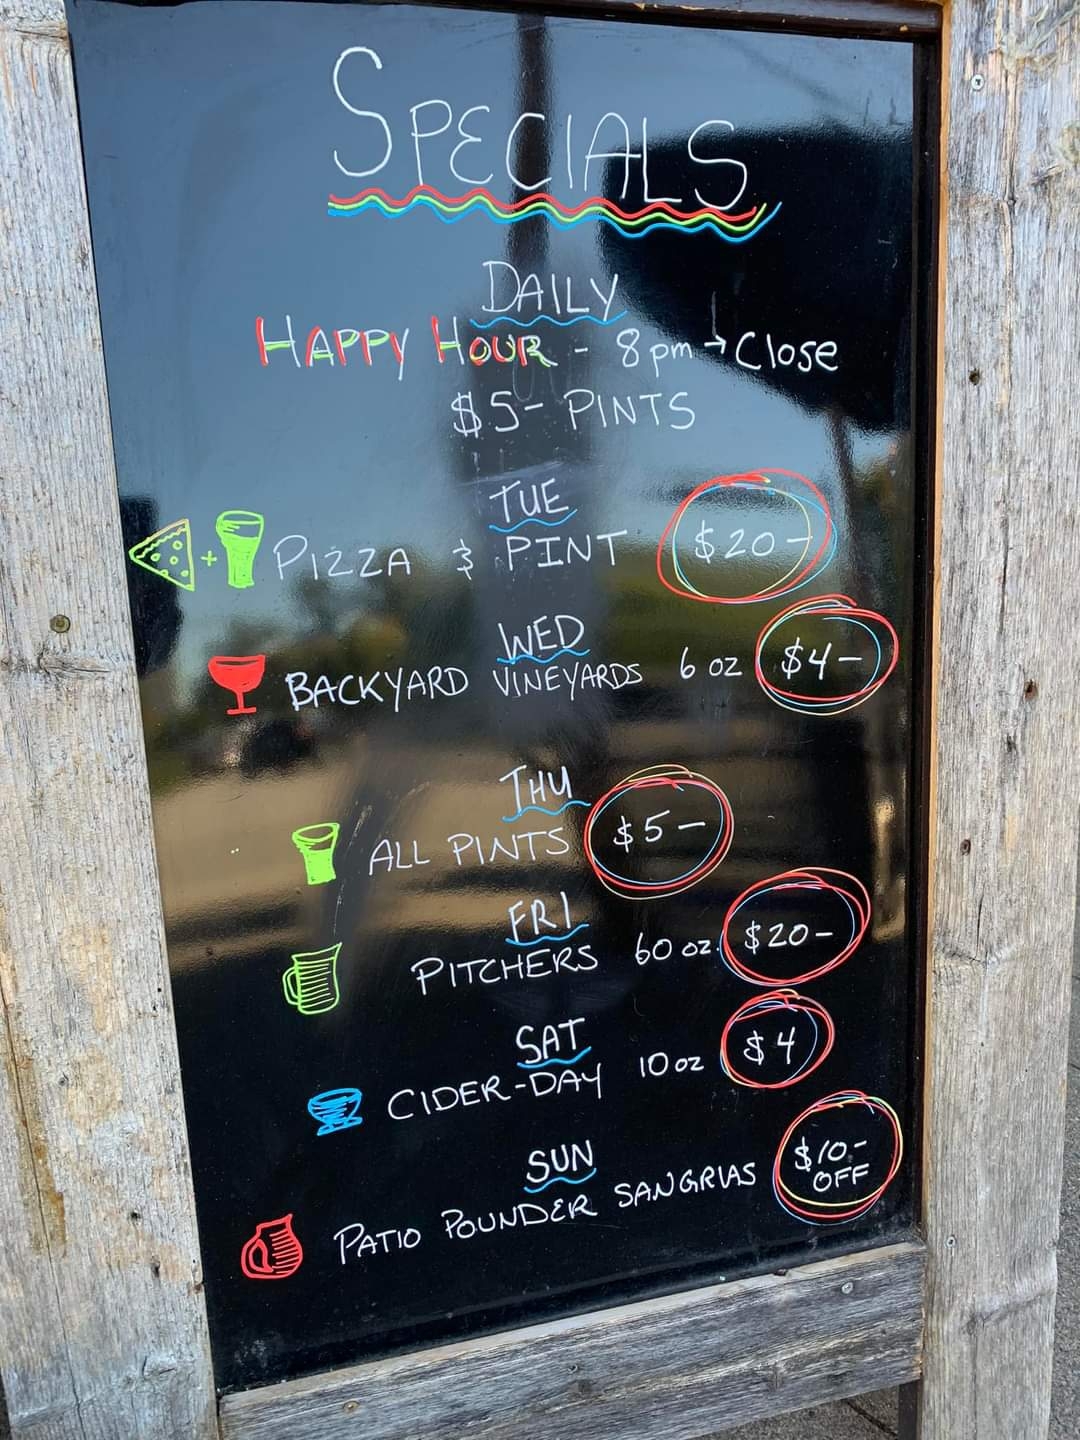 SPECIALS
DAILY
HAPPY HOUR - 8pm → Close
$5- PINTS
TUE
+ PIZZA & PINT $20-
WED
BACKYARD VINEYARDS 6 oz $4-
THU
ALL PINTS $5-
FRI
PITCHERS 60 oz. $20-
SAT
CIDER-DAY 10 oz $4
SUN
PATIO POUNDER SANGRIAS $10- OFF